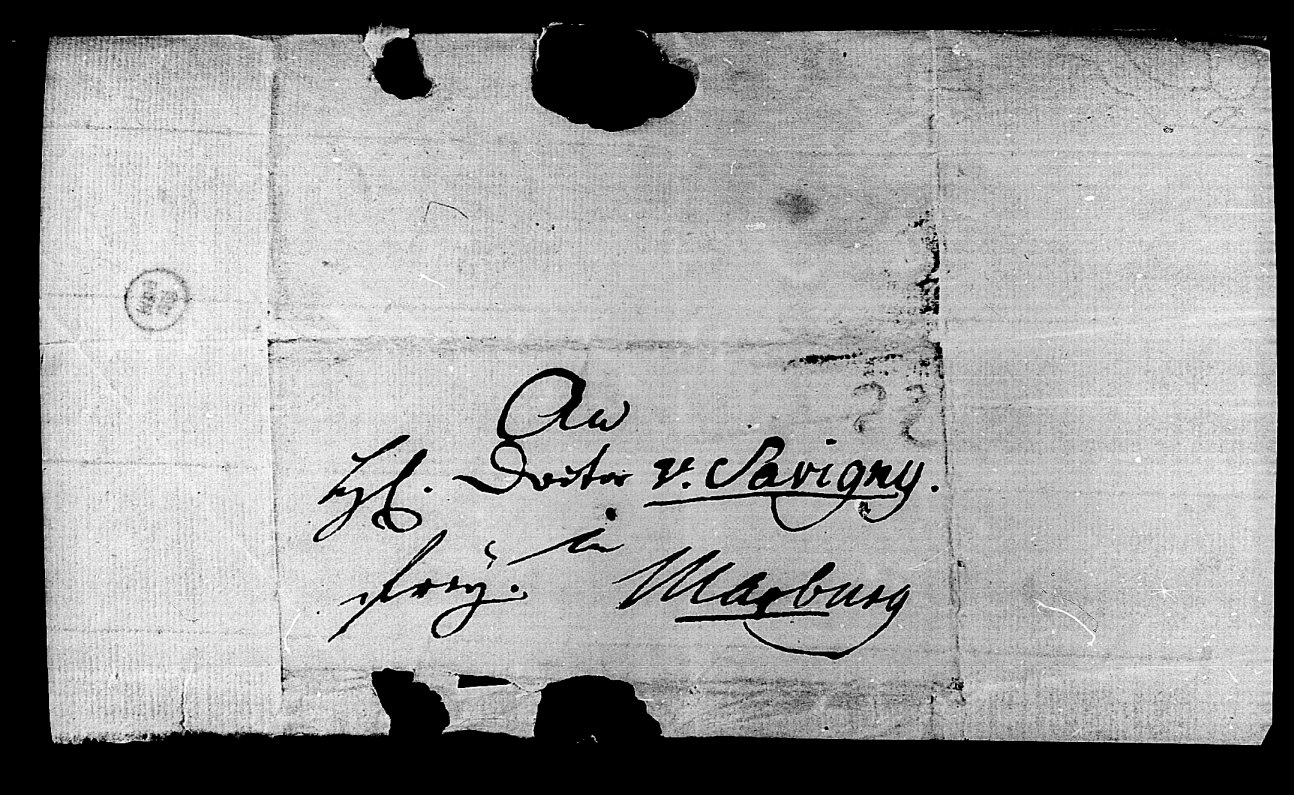 An
H. Doctor v. Savigny.
frey. in Marburg